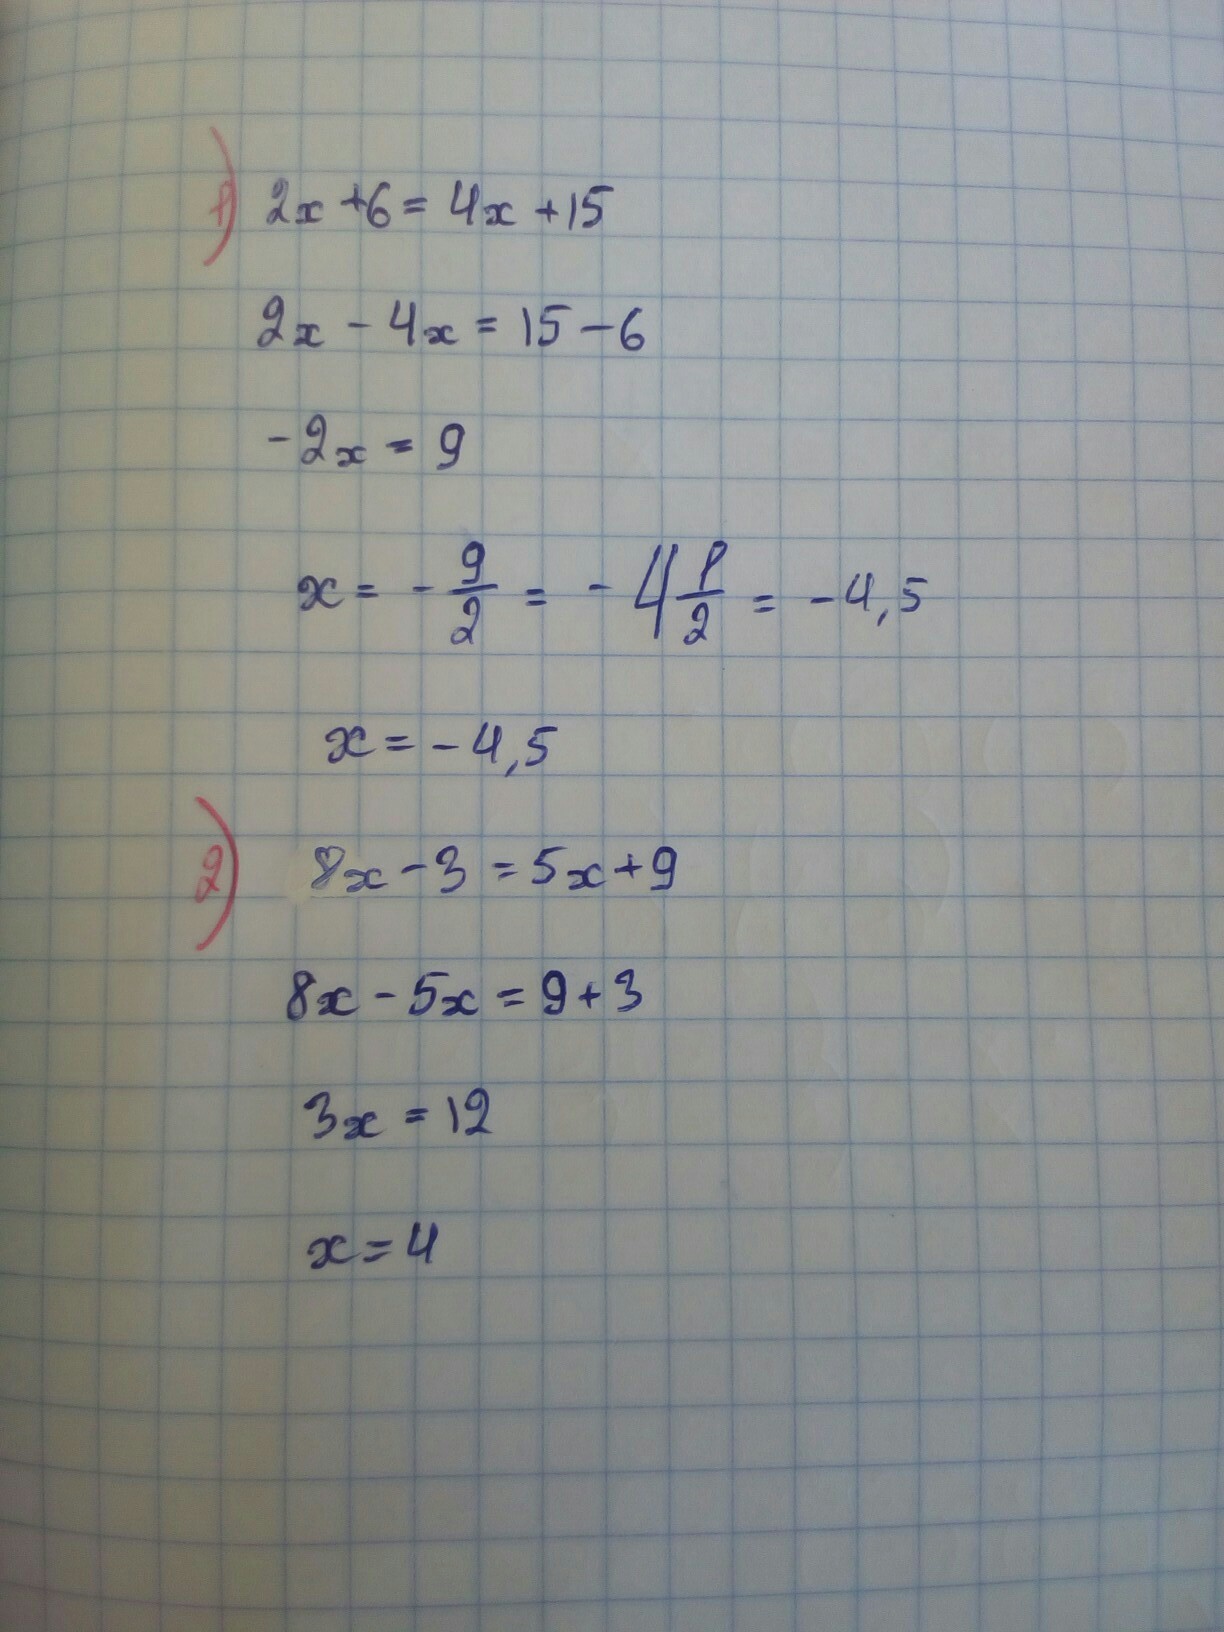 1) 2x + 6 = 4x + 15
2x - 4x = 15 - 6
-2x = 9
x = - 9/2 = - 4 1/2 = -4,5
x = -4,5
2) 8x - 3 = 5x + 9
8x - 5x = 9 + 3
3x = 12
x = 4